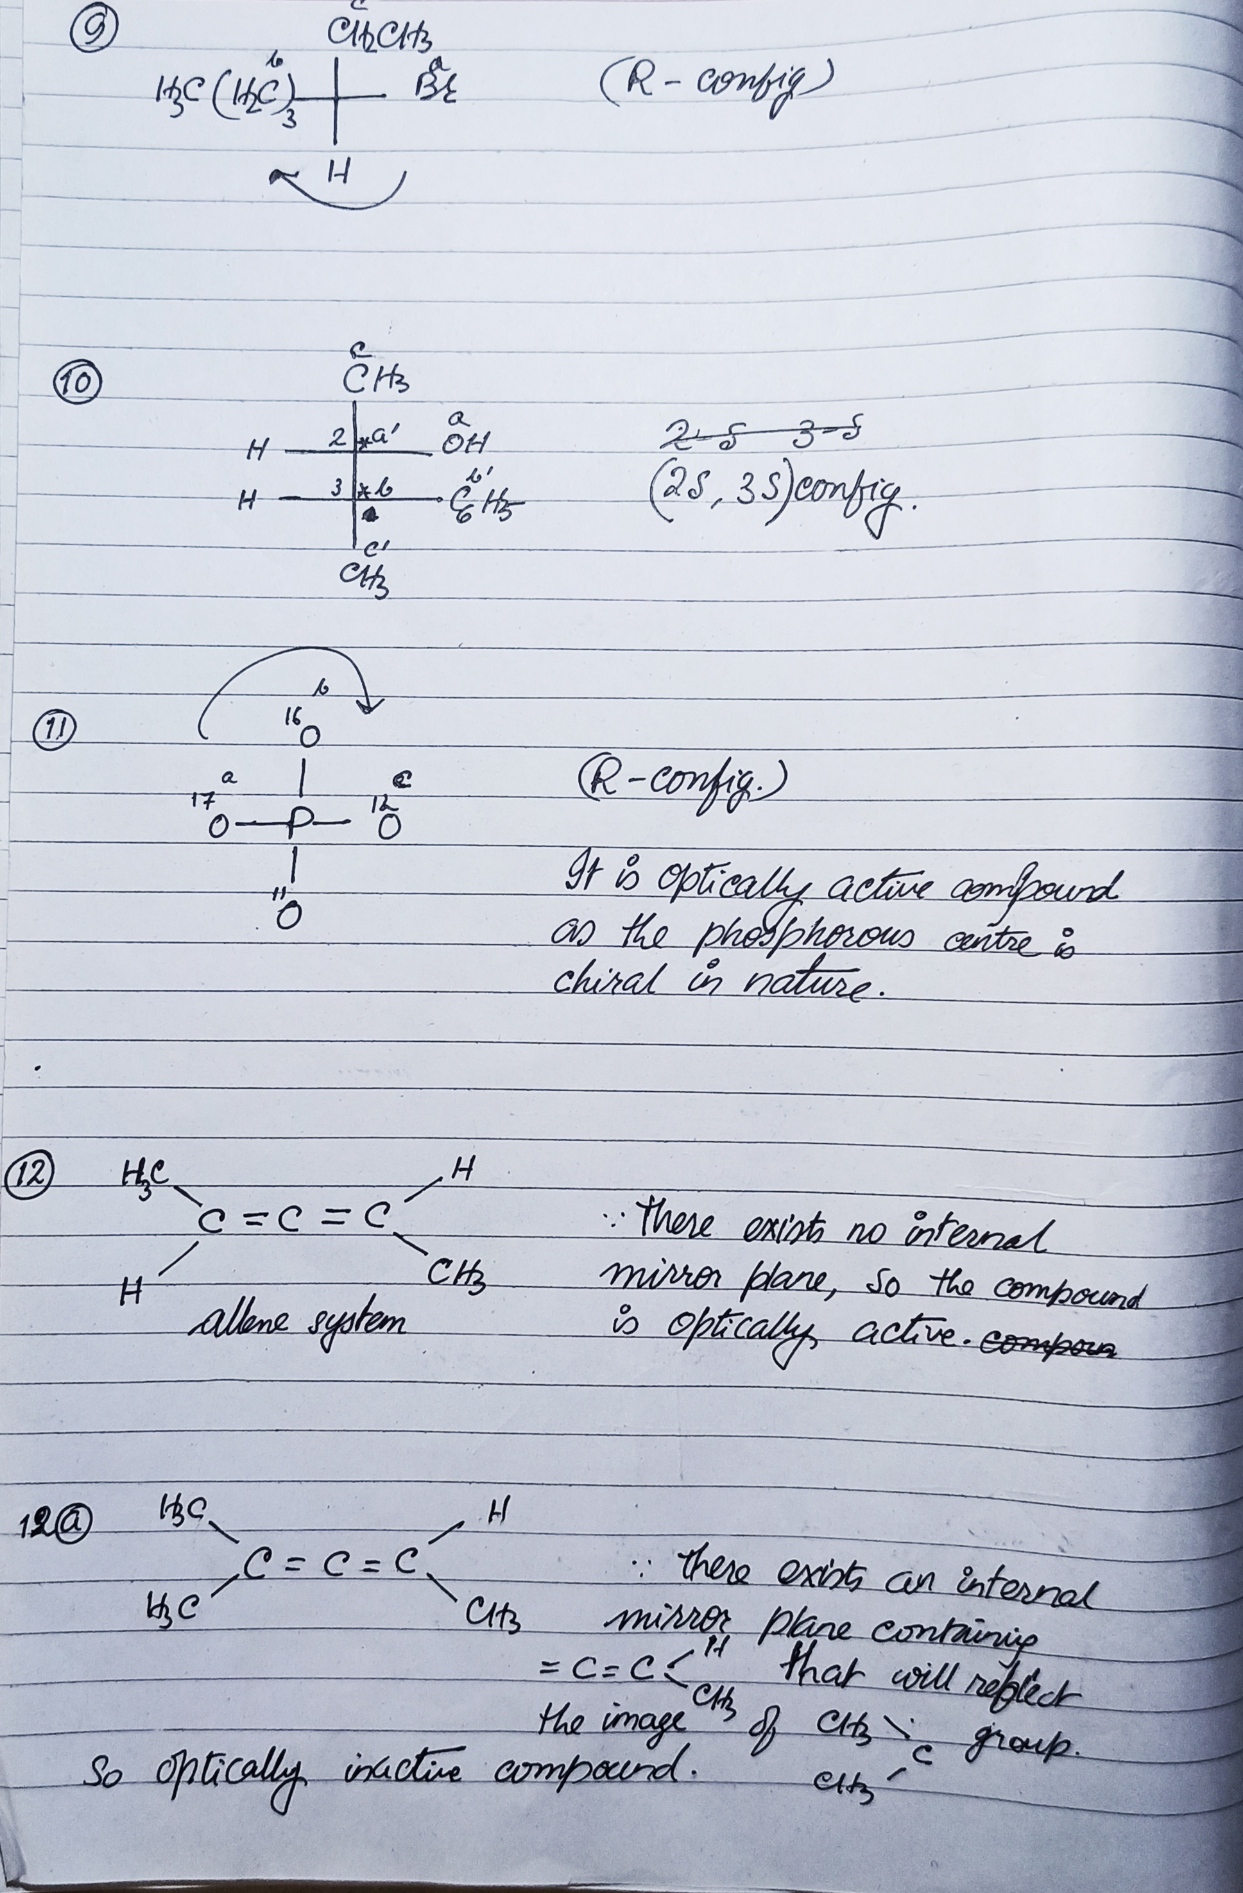 9
c
CH2CH3
b
a
H3C(H2C)3 Br (R-config)
H
10
c
CH3
a
H 2 *a' OH 2-S 3-S
b'
H 3 *b C6H5 (2S, 3S) config.
c'
CH3
11
b
16
O
a c
17 12
O-P-O (R-config.)
11
O
It is optically active compound
as the phosphorous centre is
chiral in nature.
12
H3C H
C=C=C
H CH3
allene system
∵ there exists no internal
mirror plane, so the compound
is optically active. compoun
12a
H3C H
C=C=C
H3C CH3
∵ there exists an internal
mirror plane containing
=C=C<H CH3 that will reflect
the image of CH3 CH3 C group.
So optically inactive compound.